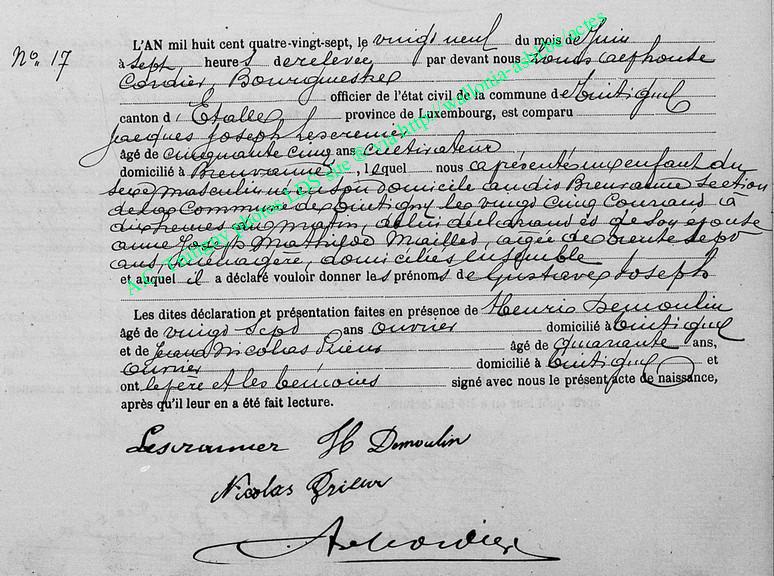 No. 17
L'AN mil huit cent quatre-vingt-sept, le vingt neuf du mois de Juin
à sept heures de relevée par devant nous Louis alphonse
Cordier, Bourgmestre
officier de l'état civil de la commune de tintigny
canton d'Étalle, province de Luxembourg, est comparu
Jacques Joseph Lescrenier
âgé de cinquante cinq ans, cultivateur
domicilié à Breuvanne, lequel nous a présenté un enfant du
sexe masculin né à son domicile au dis Breuvanne section
de la Commune de tintigny, le vingt cinq Courant à
dix heures du matin, de lui déclarant et de son épouse
anne Joseph Mathilde Maillet, agée de trente sept
ans, ménagère, domiciliés ensemble
et auquel il a déclaré vouloir donner les prénoms de Gustave Joseph
Les dites déclaration et présentation faites en présence de Henri Demoulin
âgé de vingt sept ans ouvrier domicilié à tintigny
et de Nicolas âgé de quarante ans,
ouvrier domicilié à tintigny et
ont le père et les témoins signé avec nous le présent acte de naissance,
après qu'il leur en a été fait lecture.
H Demoulin
Nicolas Prieur
A.C. photos LDS site @ via http://wallonia-asbl.be/actes